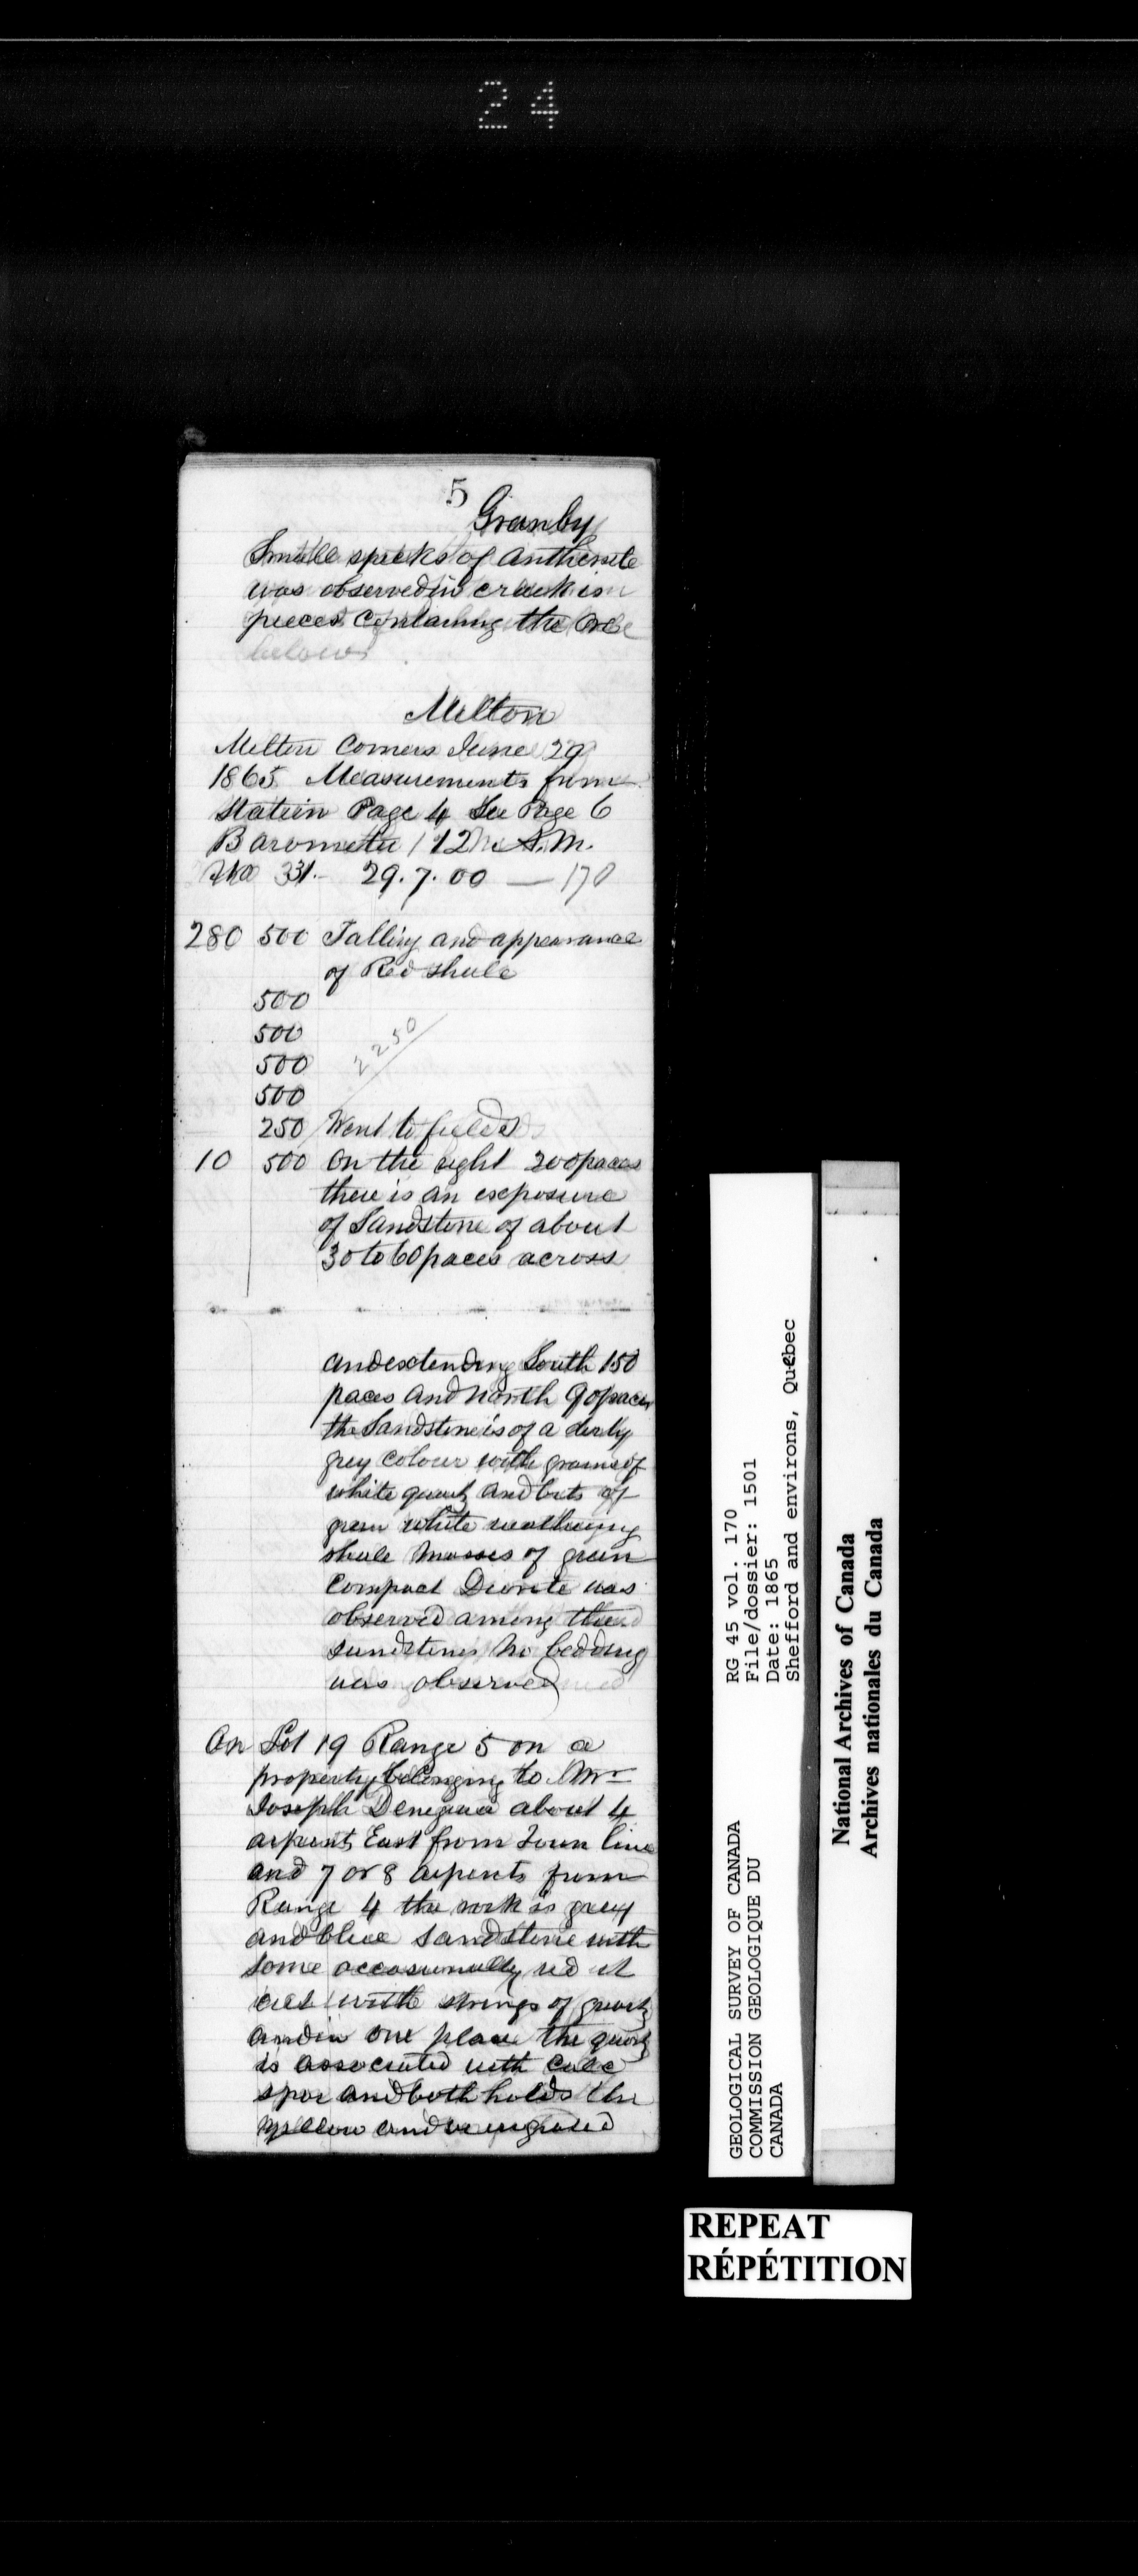 24
5
Granby
Small specks of Anthersite
was observed in cracks in
pieces containing the Ore
below
Milton
Milton Corners June 29
1865 Measurements from
Station Page 4 See Page 6
Barometer 12 A.M.
No 331.- 29.7.00 — 170
280 500 Falling and appearance
of Red shale
500
500
500
2250
500
250 Went to fields
10 500 On the right 200 paces
there is an exposure
of Sandstone of about
30 to 60 paces across
and extending South 150
paces and North 90 paces
the Sandstone is of a dirty
grey colour with grains of
white quartz and bits of
green white weathering
shale Masses of green
Compact Diorite was
observed among the
sandstones No bedding
was observed
On Lot 19 Range 5 on a
property belonging to Mr
Joseph about 4
arpents East from Town line
and 7 or 8 arpents from
Range 4 the rock is grey
and blue sandstone with
some occasionally red it
with strings of quartz
and in one place the quartz
is associated with calc
spar and both holds the
yellow and
GEOLOGICAL SURVEY OF CANADA
COMMISSION GEOLOGIQUE DU
CANADA
RG 45 vol. 170
File/dossier: 1501
Date: 1865
Shefford and environs, Quebec
National Archives of Canada
Archives nationales du Canada
REPEAT
RÉPÉTITION